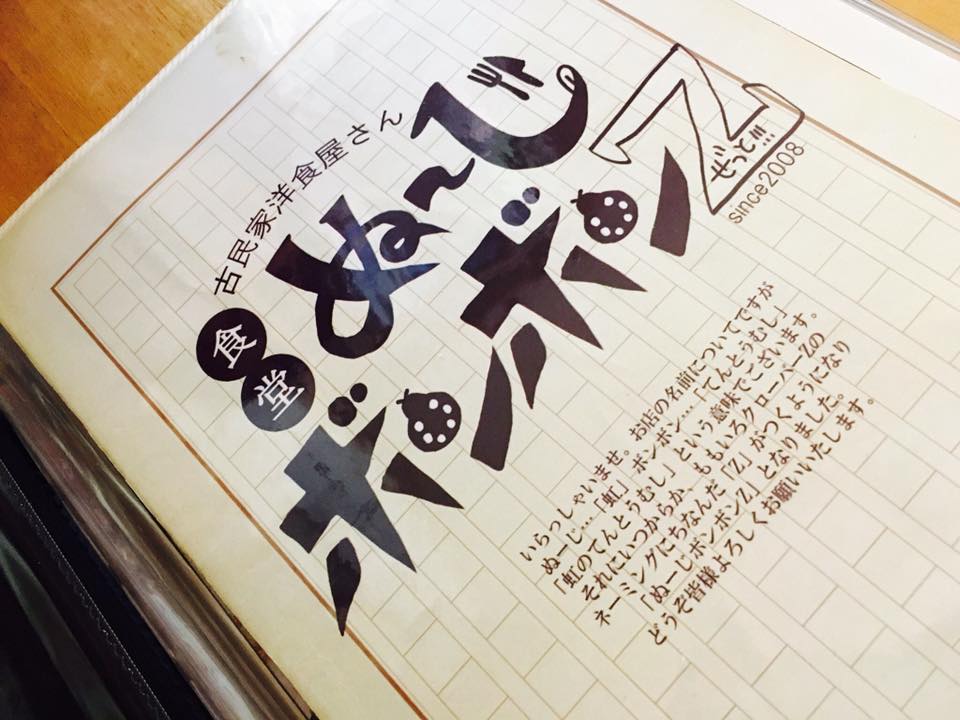 古民家洋食屋さん
食堂
ぬ〜じ
ボンボンZ
ぜっと!!!
since2008
いらっしゃいませ。お店の名前についてですが
ぬーじ…「虹」ボンボン…「てんとうむし」
「虹のてんとうむし」という意味でございます。
それにいつからか、ももいろクローバーZの
ネーミングにちなんだ「Z」がつくようになり
「ぬーじボンボンZ」となりました。
どうぞ皆様よろしくお願いいたします。